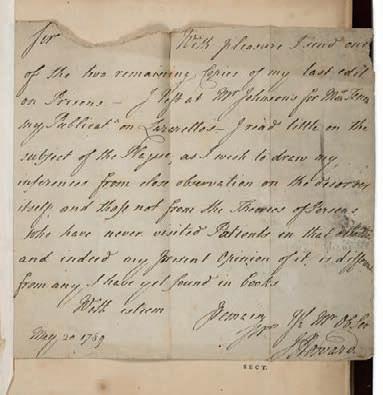 Sir
With pleasure I send one
of the two remaining Copies of my last edit
on Persons – I left at Mr Johnson's for
my Publicatn on Lazarettos – I read little on the
subject of the Plague, as I wish to draw my
inferences from close observation on the disorder
itself and not from the Theories of Persons
who have never visited Patients in that
and indeed my present Opinion of it is different
from any I have yet found in books
With esteem
I remain
Sir Yr Mt Ob Ser
May 20 1789
J Howard
SECT.